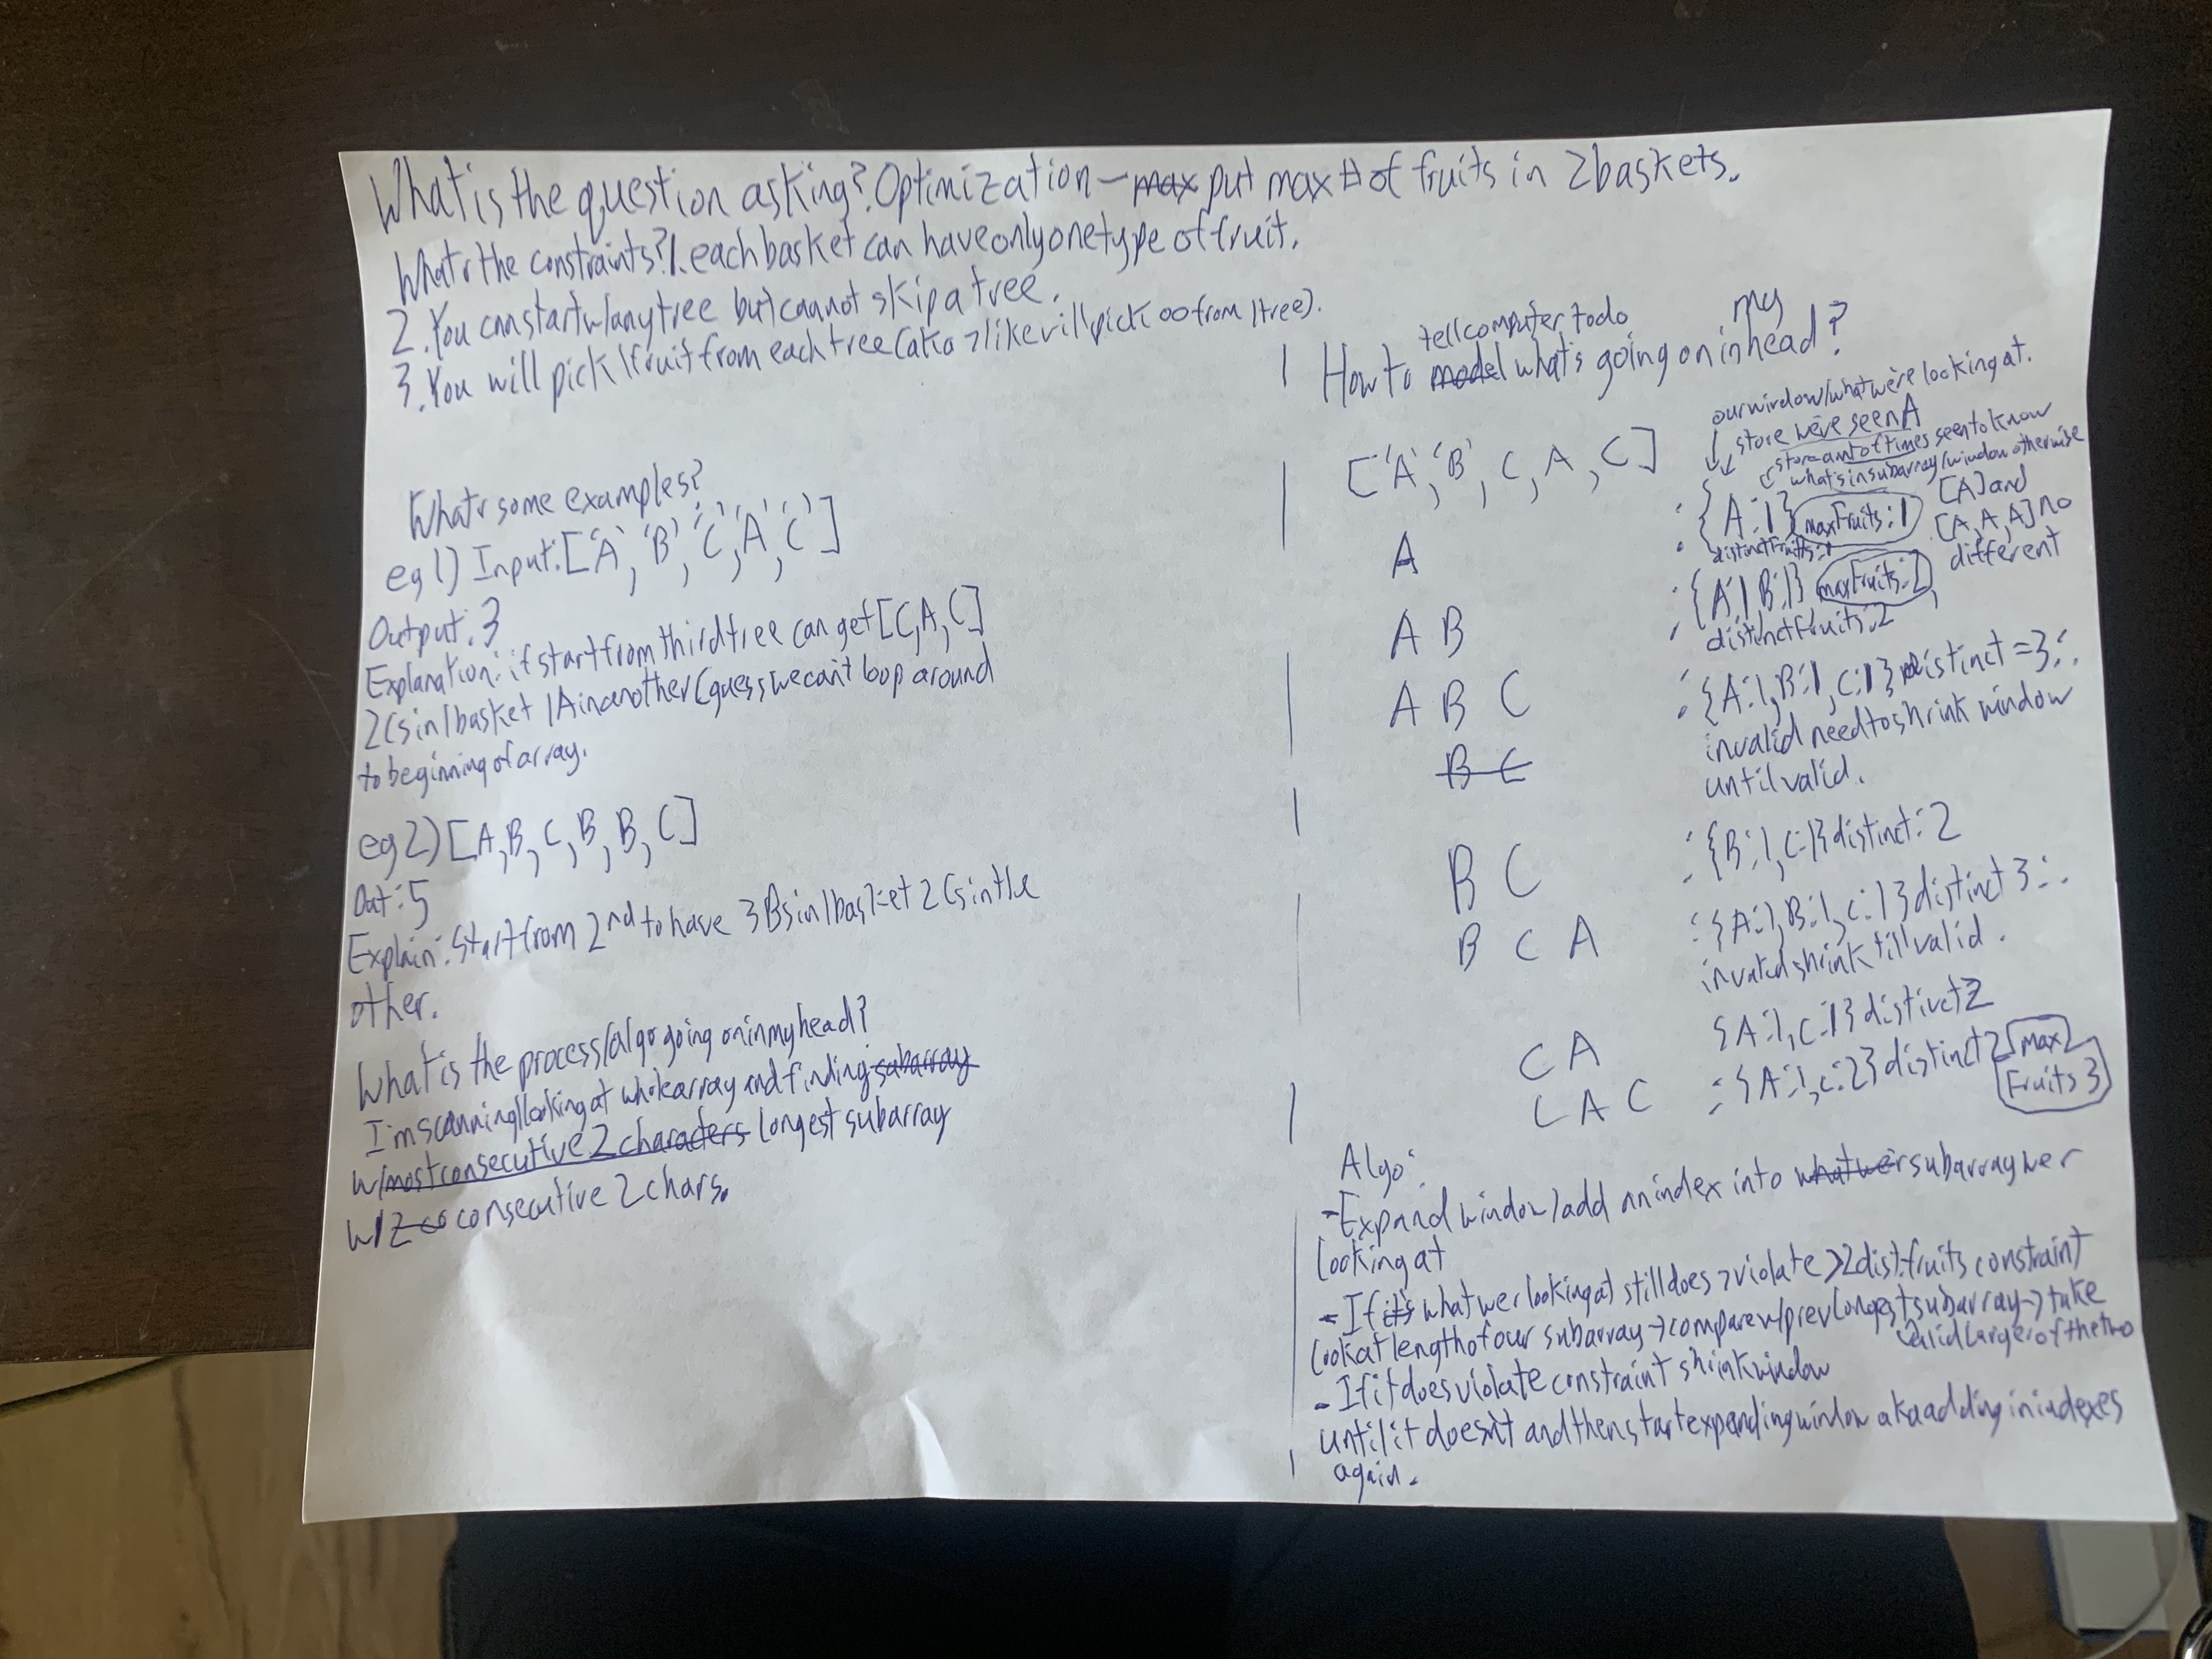 What is the question asking? Optimization - max put max # of fruits in 2 baskets.
What r the constraints? 1. each basket can have only one type of fruit.
2. You can start w/ any tree but cannot skip a tree.
3. You will pick 1 fruit from each tree (aka > like vill pick ∞ from 1 tree).
What r some examples?
eg 1) Input: ['A', 'B', 'C', 'A', 'C']
Output: 3
Explanation: if start from third tree can get [C, A, C]
2 Cs in 1 basket 1 A in another (guess we can't loop around
to beginning of array.
eg 2) [A, B, C, B, B, C]
Out: 5
Explain: Start from 2nd to have 3 Bs in 1 basket 2 Cs in the
other.
What is the process/algo going on in my head?
I'm scanning/looking at whole array and finding subarray
w/ most consecutive 2 characters longest subarray
w/ 2 co consecutive 2 chars.
tell computer to do my
How to model what's going on in head?
our window/what we're looking at.
store we've seen A
store amt of times seen to know
what's in subarray/window otherwise
[A] and
[A, A, A] no
different
['A', 'B', C, A, C]
A : {A:1} maxFruits: 1
distinctFruits: 1
A B : {A:1 B:1} maxFruits: 2
distinctFruits: 2
A B C : {A:1, B:1, C:1} distinct = 3 ∴
invalid need to shrink window
until valid.
B C
B C : {B:1, C:1} distinct: 2
B C A : {A:1, B:1, C:1} distinct 3 ∴
invalid shrink till valid.
C A {A:1, C:1} distinct 2
C A C : {A:1, C:2} distinct 2 max
Fruits 3
Algo:
- Expand window/add an index into what we r subarray we r
looking at
- If it's what we r looking at still does > violate >2 dist. fruits constraint
look at length of our subarray → compare w/ prev longest subarray → take
valid larger of the two
- If it does violate constraint shrink window
until it doesn't and then start expanding window aka adding in indexes
again.